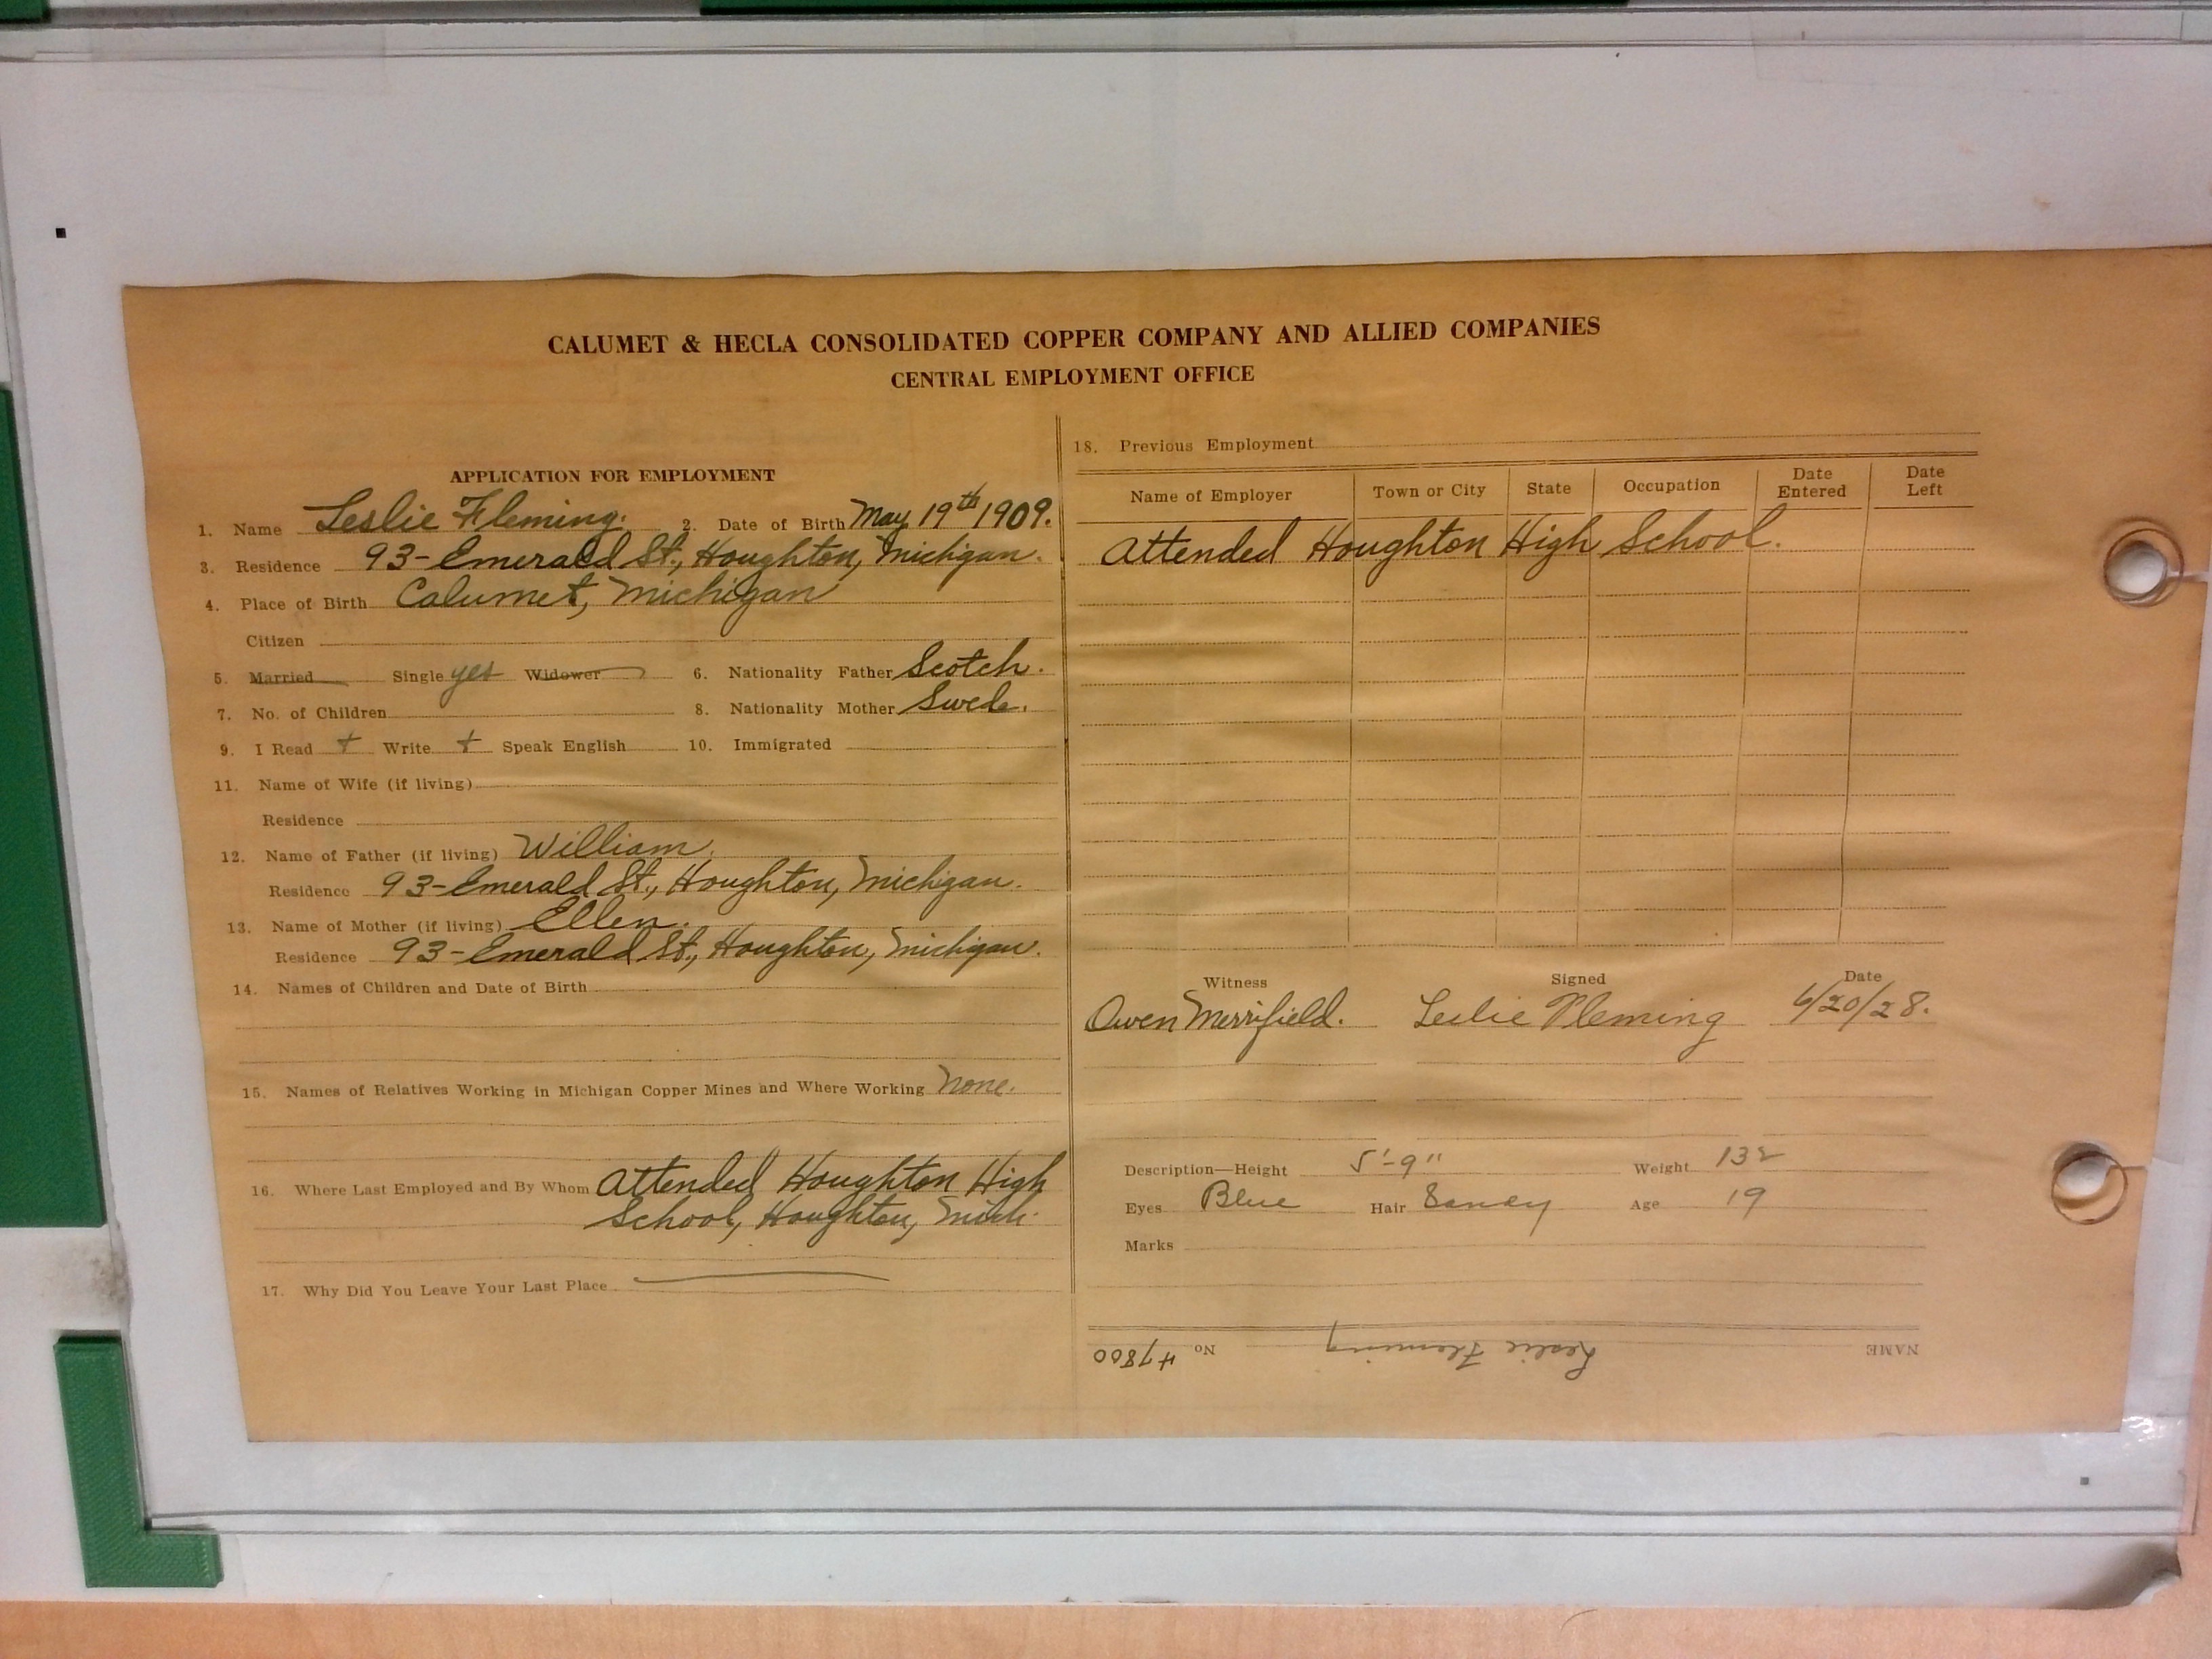 CALUMET & HECLA CONSOLIDATED COPPER COMPANY AND ALLIED COMPANIES
CENTRAL EMPLOYMENT OFFICE
APPLICATION FOR EMPLOYMENT
1. Name Leslie Fleming. 2. Date of Birth May 19th 1909.
3. Residence 93-Emerald St., Houghton, Michigan.
4. Place of Birth Calumet, Michigan
Citizen
5. Married Single yes Widower 6. Nationality Father Scotch.
7. No. of Children 8. Nationality Mother Swede.
9. I Read + Write + Speak English 10. Immigrated
11. Name of Wife (if living)
Residence
12. Name of Father (if living) William.
Residence 93-Emerald St., Houghton, Michigan.
13. Name of Mother (if living) Ellen.
Residence 93-Emerald St., Houghton, Michigan.
14. Names of Children and Date of Birth
15. Names of Relatives Working in Michigan Copper Mines and Where Working none.
16. Where Last Employed and By Whom Attended Houghton High
School, Houghton, Mich.
17. Why Did You Leave Your Last Place
18. Previous Employment
Name of Employer Town or City State Occupation Date Entered Date Left
Attended Houghton High School.
Witness Signed Date
Owen Merrifield. Leslie Fleming 6/20/28.
Description—Height 5'-9" Weight 132
Eyes Blue Hair Sandy Age 19
Marks
NAME Leslie Fleming No. 47800